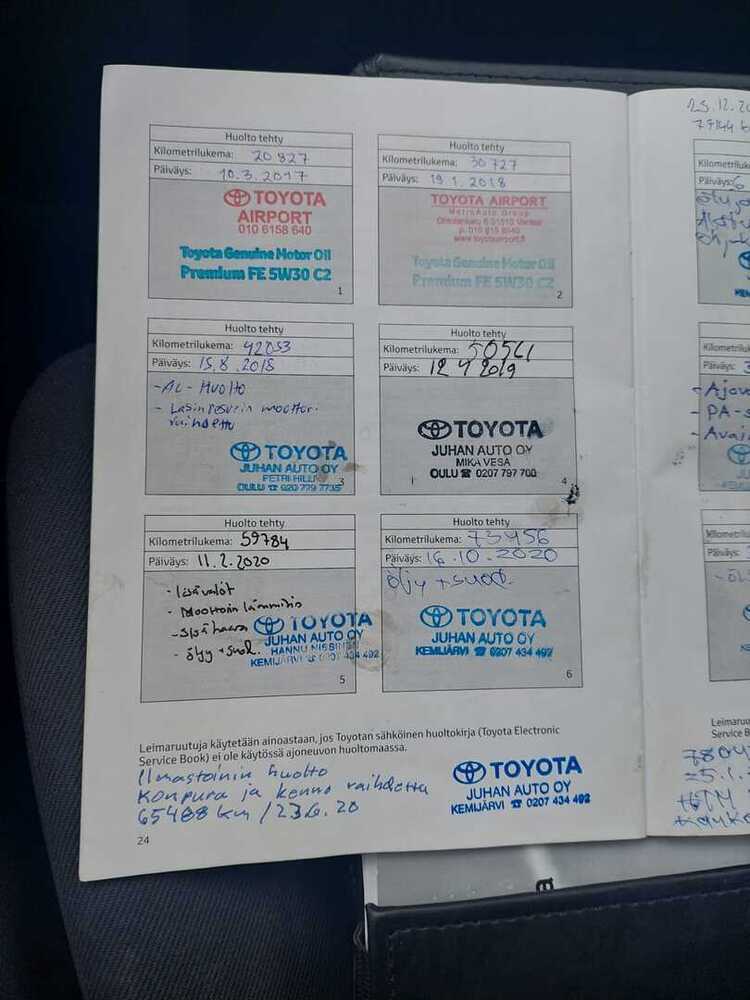 Huolto tehty
Kilometrilukema: 20 827
Päiväys: 10.3.2017
TOYOTA
AIRPORT
010 6158 640
Toyota Genuine Motor Oil
Premium FE 5W30 C2
1
Huolto tehty
Kilometrilukema: 30 727
Päiväys: 19 1. 2018
TOYOTA AIRPORT
MetroAuto Group
www.toyotaairport.fi
Toyota Genuine Motor Oil
Premium FE 5W30 C2
2
Huolto tehty
Kilometrilukema: 42053
Päiväys: 15.8.2018
- AL - Huolto
- Lasinpesurin moottori
vaihdettu
TOYOTA
JUHAN AUTO OY
OULU ☎ 020 779 7735
3
Huolto tehty
Kilometrilukema:
Päiväys: 12 4 2019
TOYOTA
JUHAN AUTO OY
MIKA VESA
OULU ☎ 0207 797 700
4
Huolto tehty
Kilometrilukema: 59784
Päiväys: 11.2.2020
- lisävalot
- Moottorin lämmitin
- öljy + suod.
TOYOTA
JUHAN AUTO OY
HANNU NISSINEN
KEMIJÄRVI ☎ 0207 434 492
5
Huolto tehty
Kilometrilukema: 73456
Päiväys: 16.10.2020
öljy + suod.
TOYOTA
JUHAN AUTO OY
KEMIJÄRVI ☎ 0207 434 492
6
Leimaruutuja käytetään ainoastaan, jos Toyotan sähköinen huoltokirja (Toyota Electronic
Service Book) ei ole käytössä ajoneuvon huoltomaassa.
Ilmastoinin huolto
Konpura ja kenno vaihdettu
65488 km / 23.6.20
TOYOTA
JUHAN AUTO OY
KEMIJÄRVI ☎ 0207 434 492
24